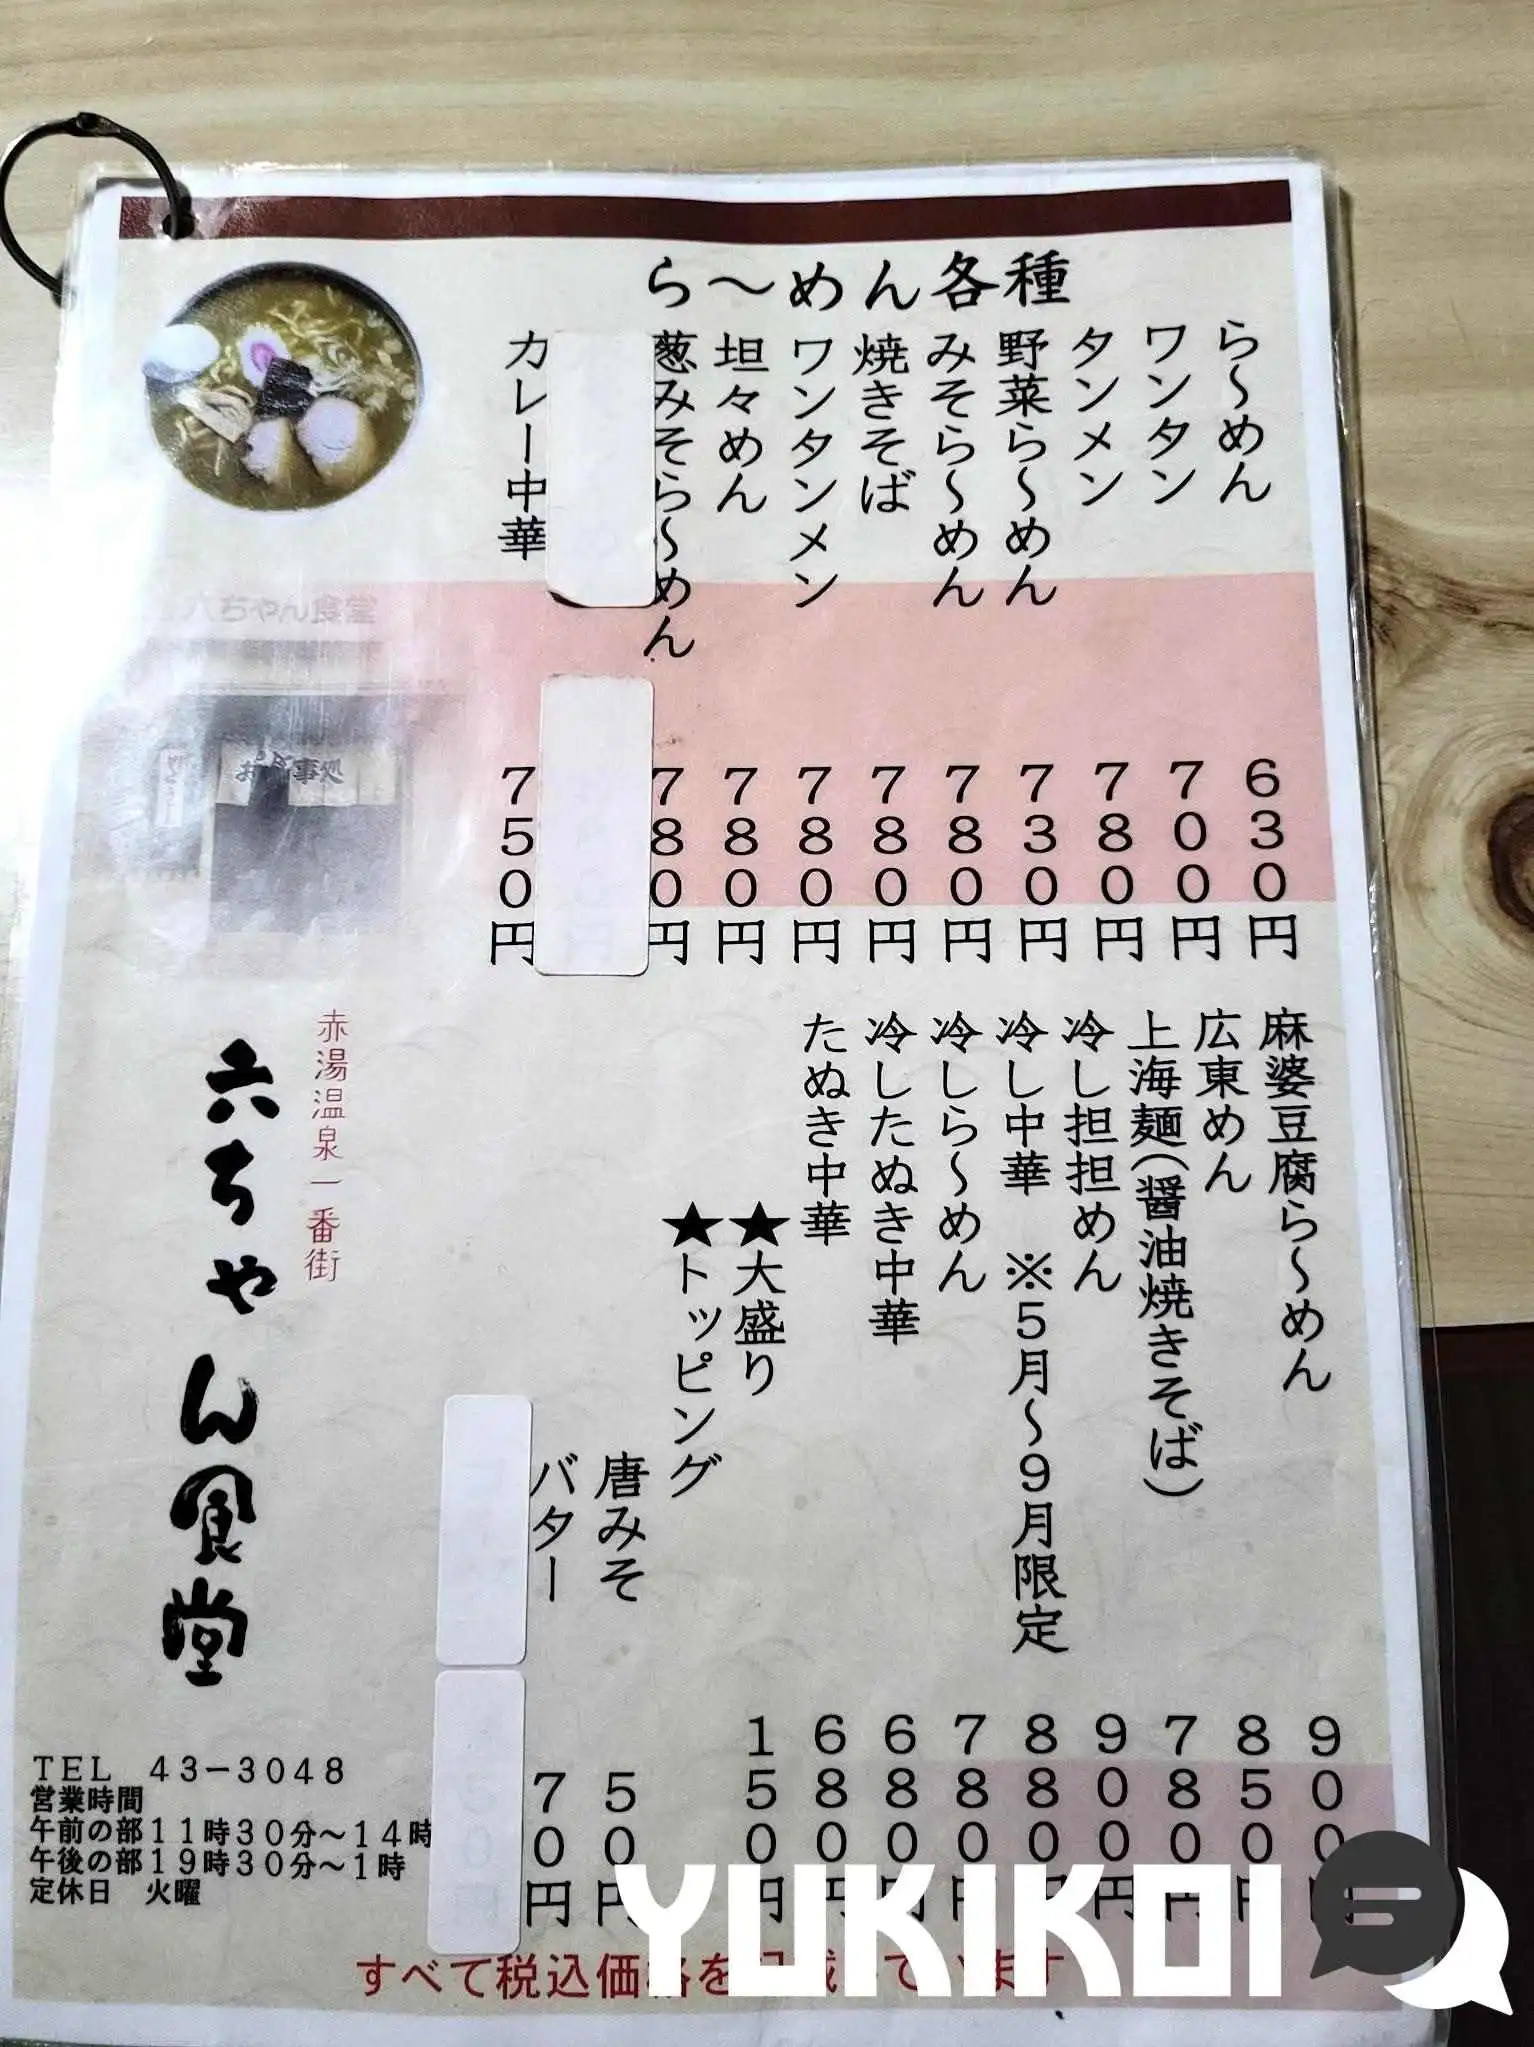 ら〜めん各種
ら〜めん 630円
ワンタン 700円
タンメン 780円
野菜ら〜めん 730円
みそら〜めん 780円
焼きそば 780円
ワンタンメン 780円
坦々めん 780円
葱みそら〜めん 780円
カレー中華 750円
麻婆豆腐ら〜めん 900円
広東めん 850円
上海麺(醤油焼きそば) 780円
冷し担担めん 900円
冷し中華 ※5月〜9月限定 880円
冷しら〜めん 780円
冷したぬき中華 680円
たぬき中華 680円
★大盛り 150円
★トッピング
唐みそ 50円
バター 70円
六ちゃん食堂
お食事処
赤湯温泉一番街
六ちゃん食堂
TEL 43-3048
営業時間
午前の部11時30分〜14時
午後の部19時30分〜1時
定休日 火曜
すべて税込価格を記載しています
YUKIKOI